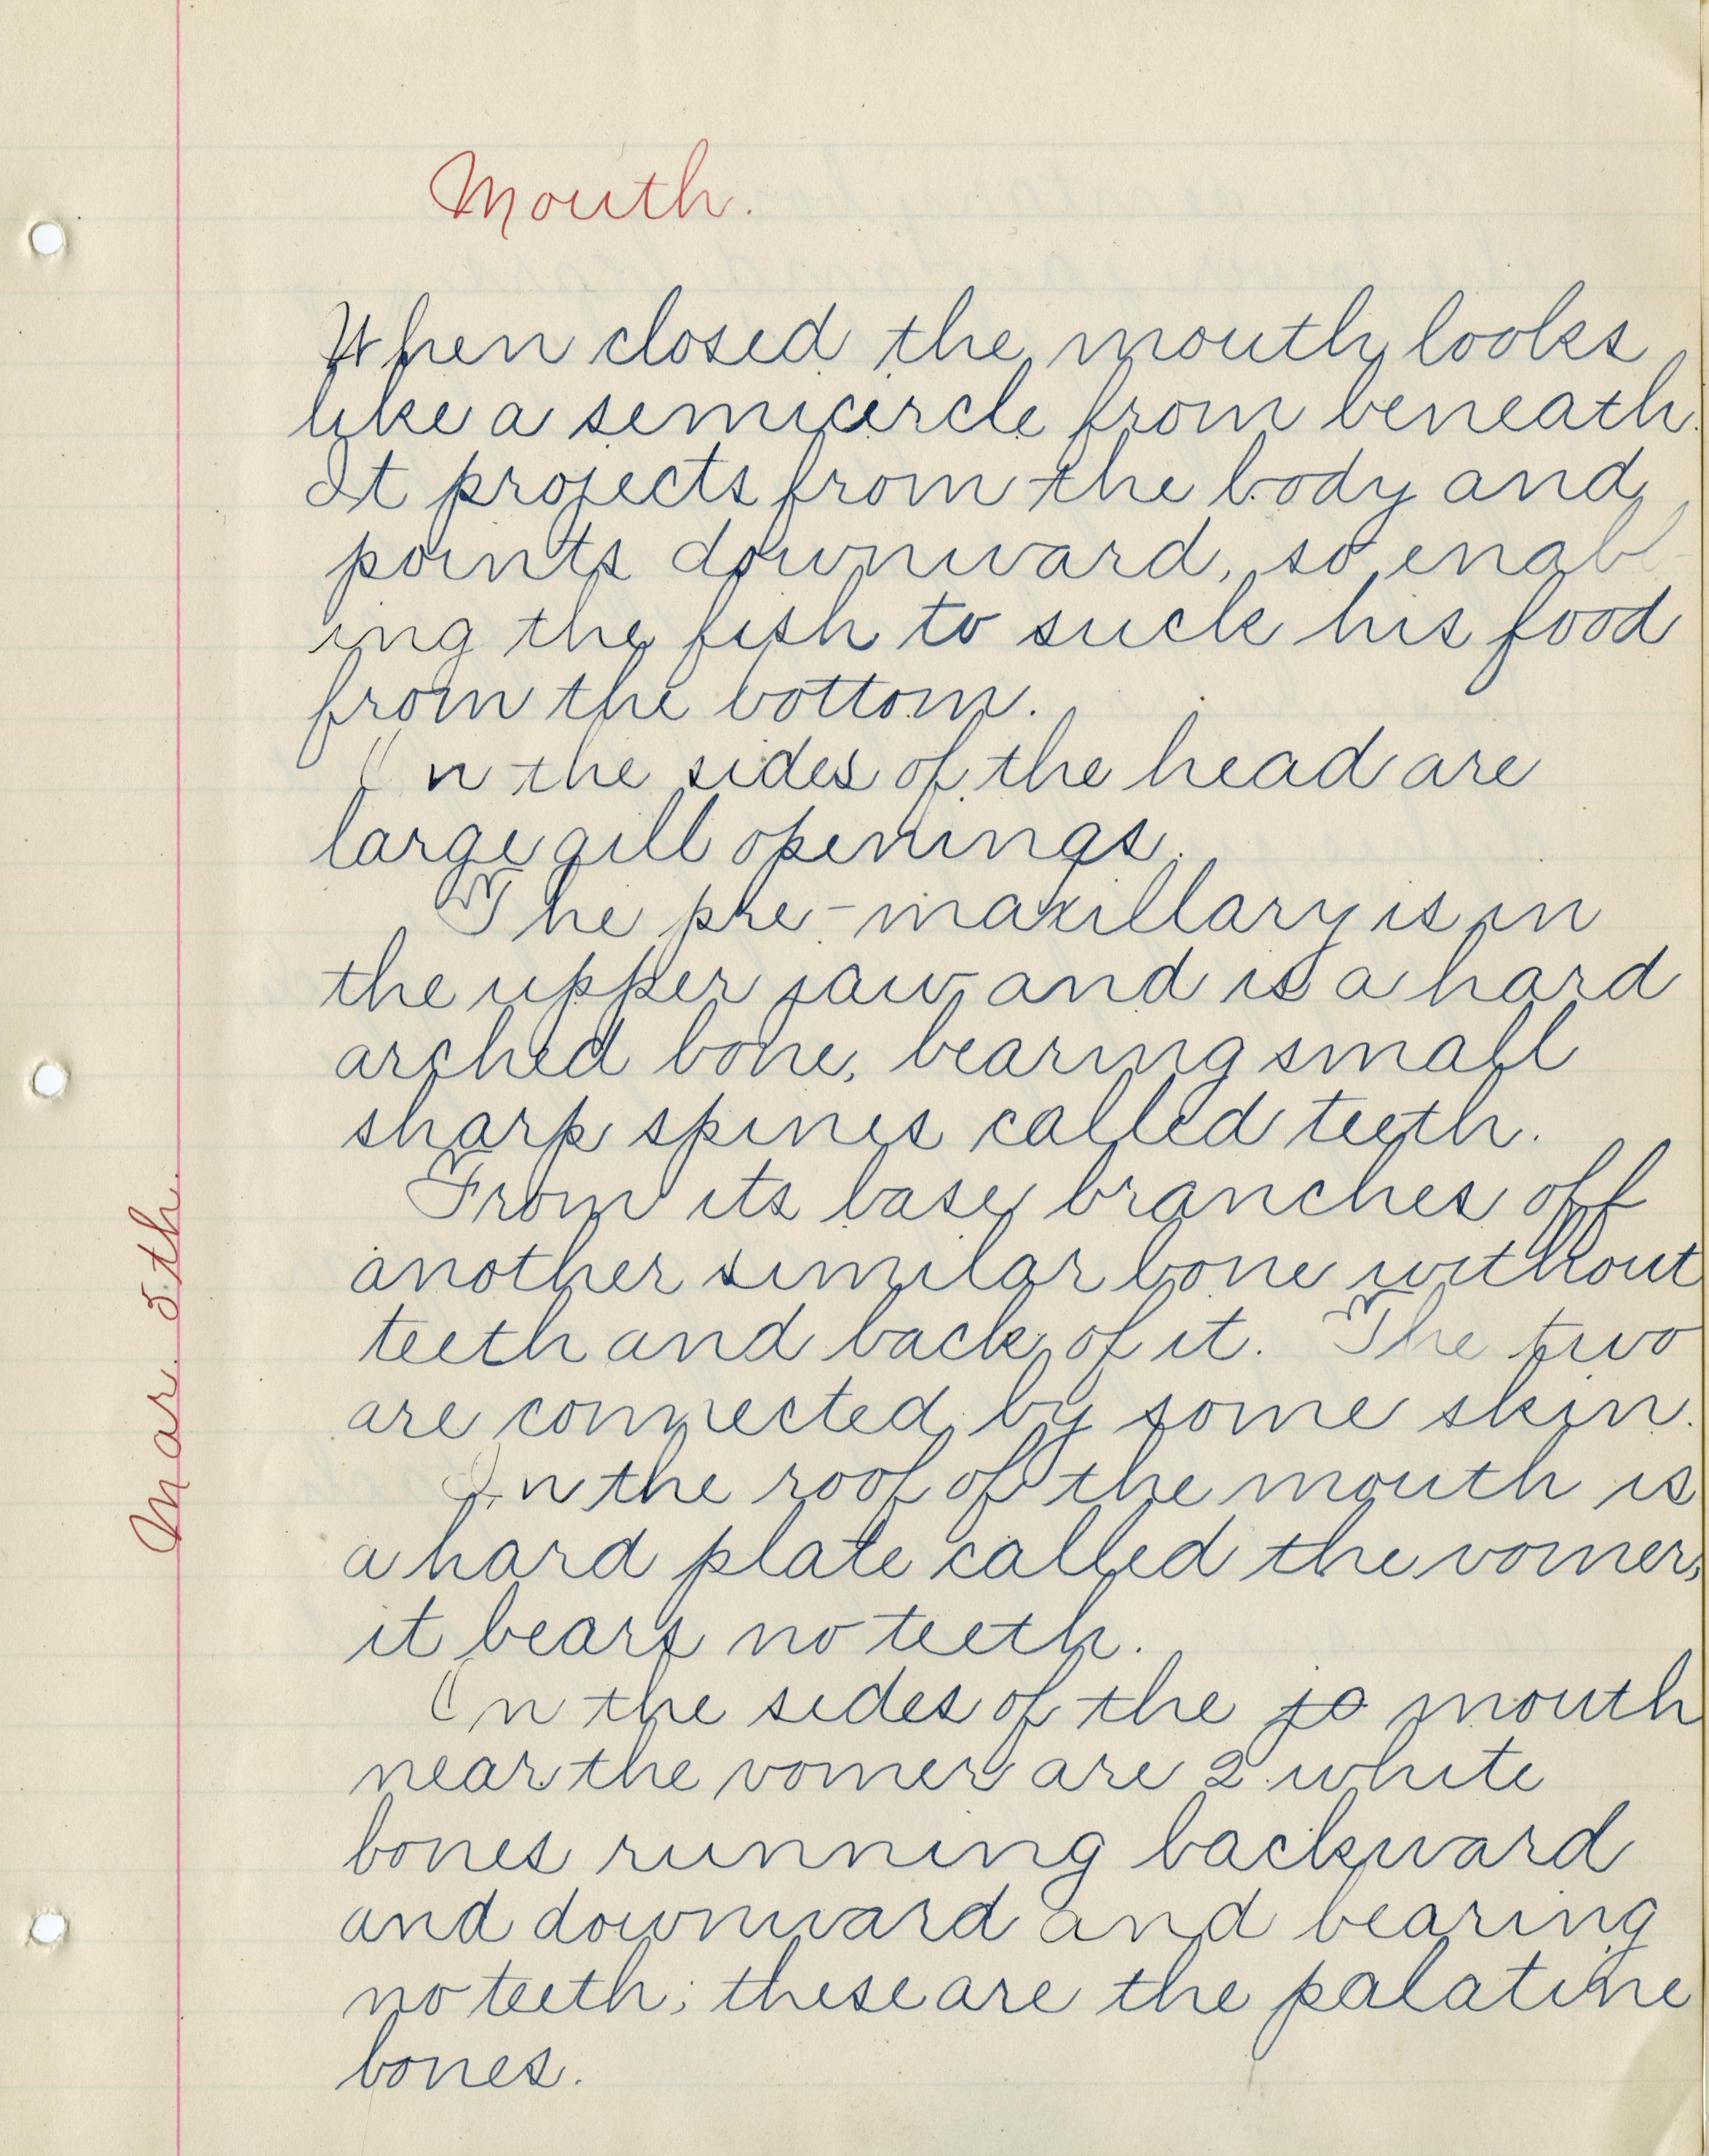 Mouth.
When closed the mouth looks
like a semicircle from beneath.
It projects from the body and
points downward, so enabl-
ing the fish to suck his food
from the bottom.
On the sides of the head are
large gill openings.
The pre-maxillary is in
the upper jaw and is a hard
arched bone, bearing small
sharp spines called teeth.
From its base branches off
another similar bone without
teeth and back of it. The two
are connected by some skin.
In the roof of the mouth is
a hard plate called the vomer,
it bears no teeth.
On the sides of the jo mouth
near the vomer are 2 white
bones running backward
and downward and bearing
no teeth; these are the palatine
bones.
Mar. 5th.